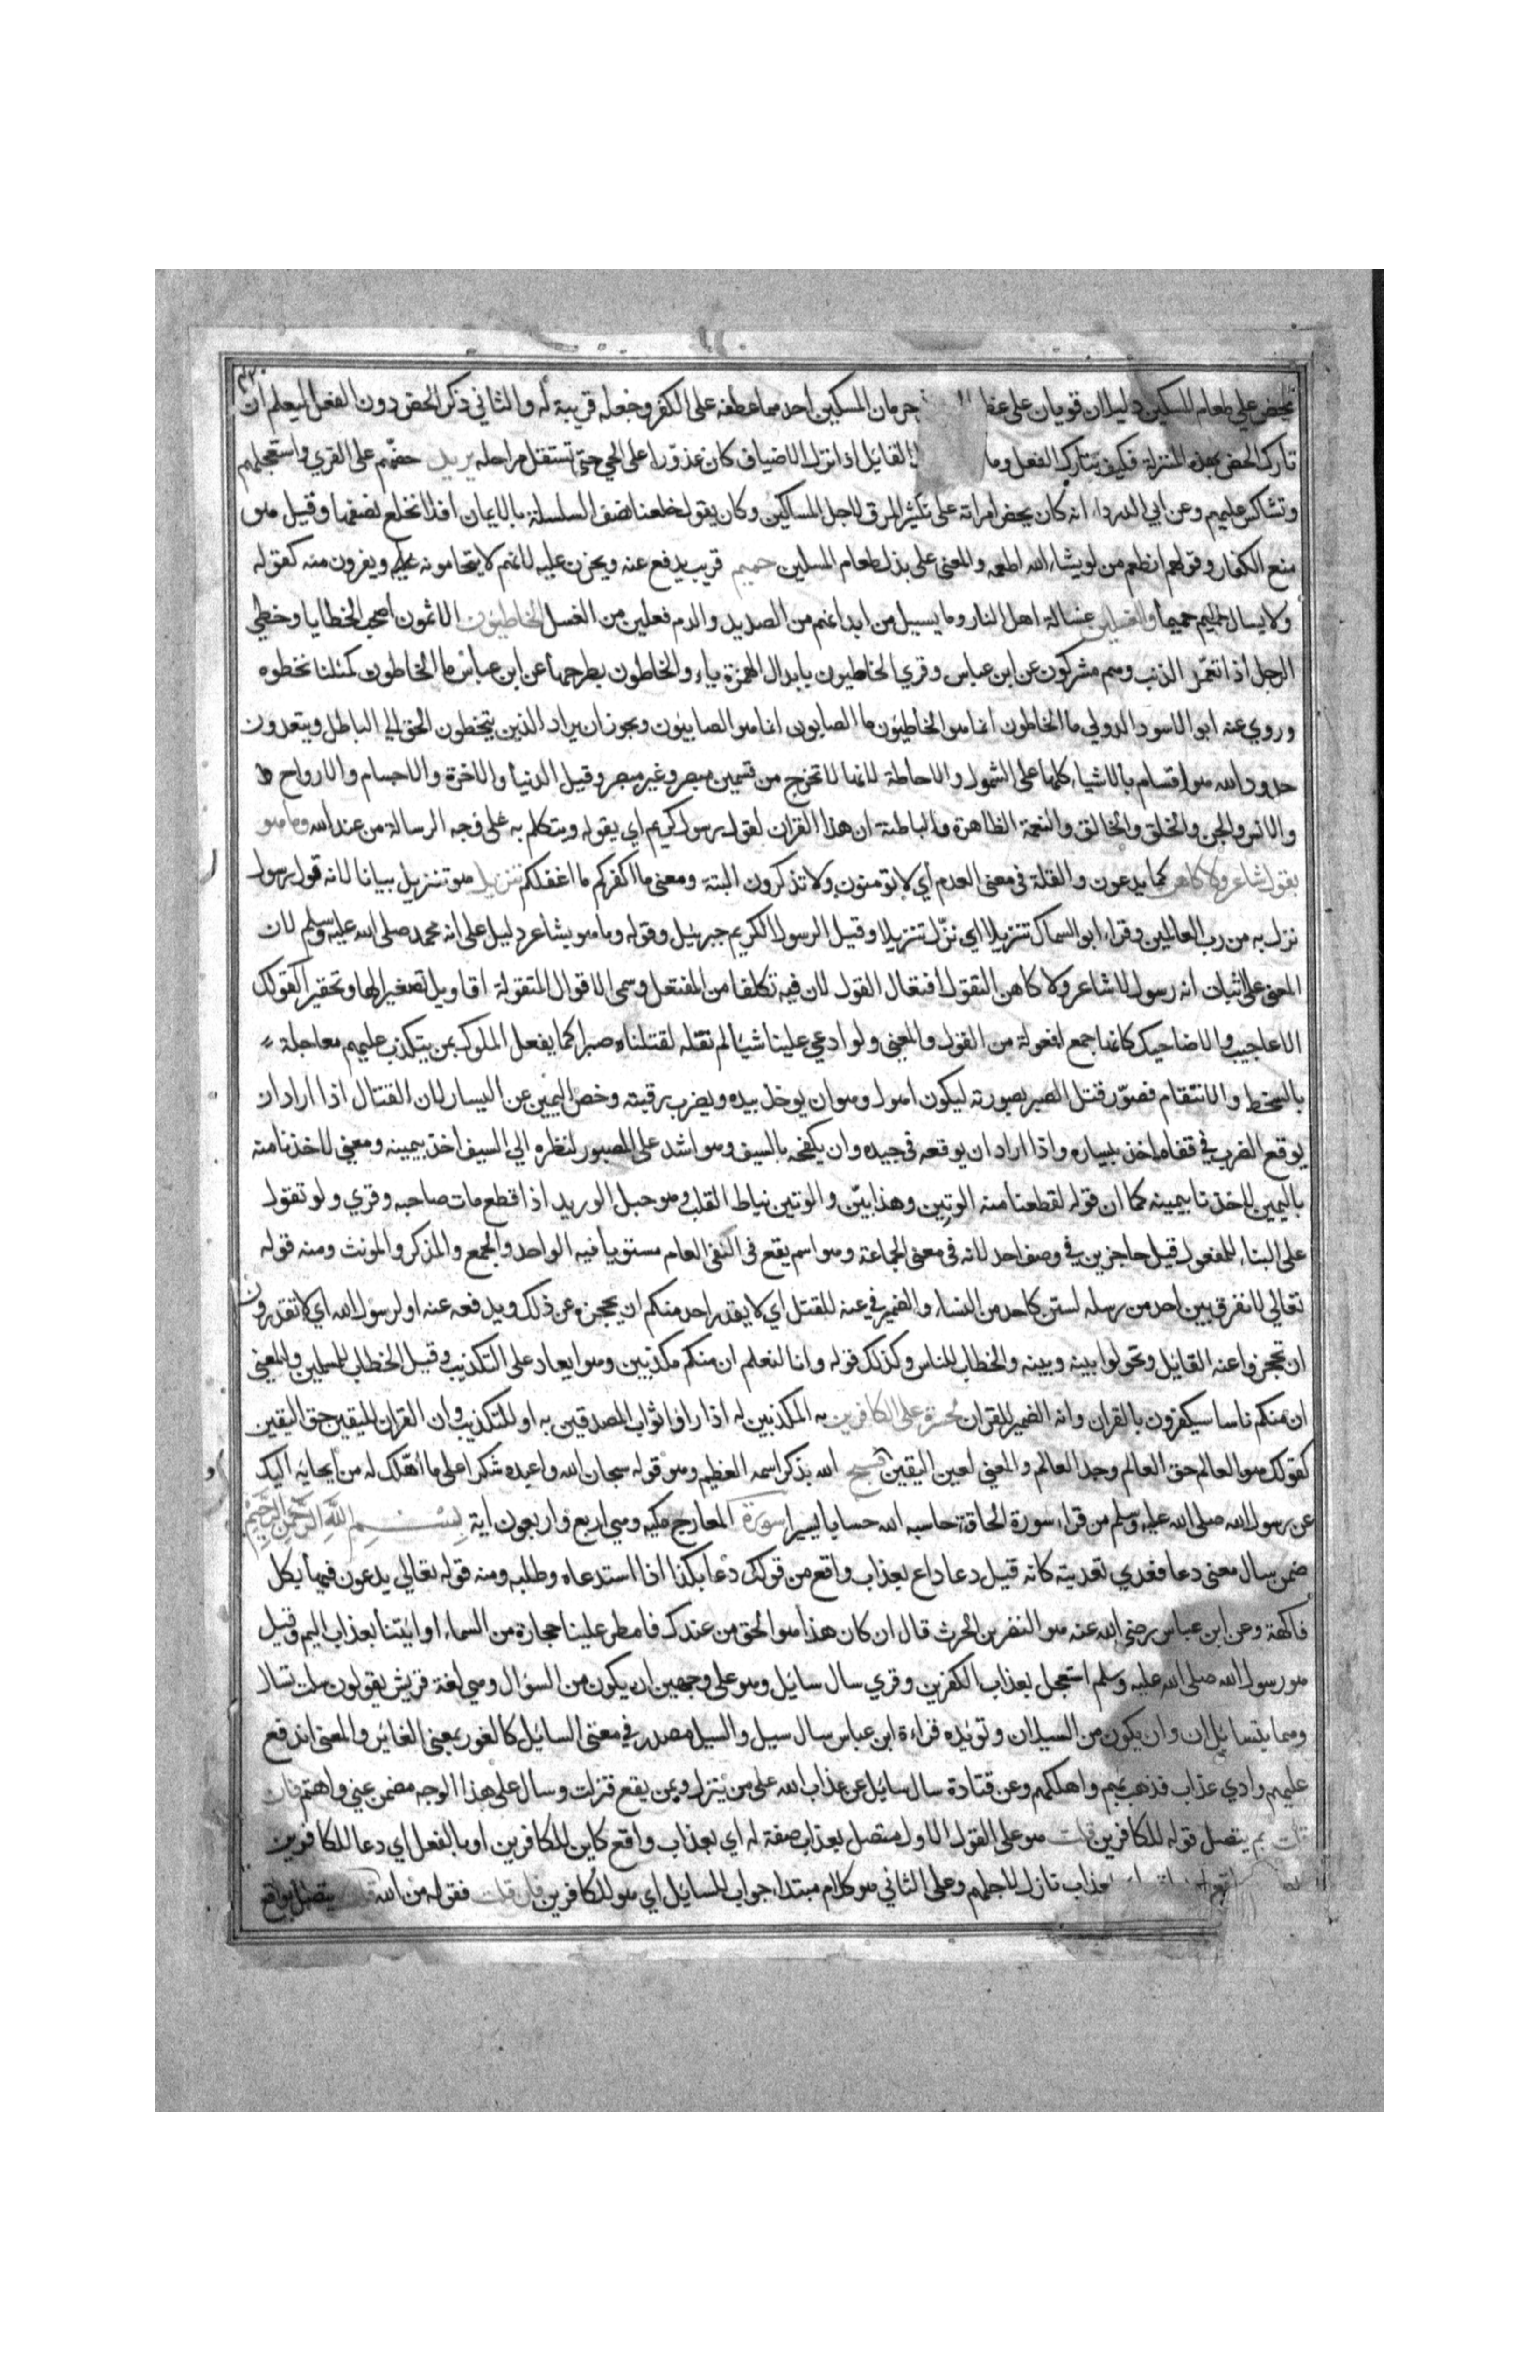 يحض علي طعام المسكين دليلان قويان علي عظ حرمان المسكين احدهما عطفه علي الكفر وجعله قريبة له والثاني ذكر الحض دون الفعل ليعلم ان
تارك الحض بهذه المنزلة فكيف بتارك الفعل وما القائل اذا نزل الاضياف كان عذوّرا علي الحي حتي تستقل مراجله يريد حضّهم علي القري واستعجلهم
وتشاكس عليهم وعن ابي الدرداء انه كان يحض امراته علي تكثير المرق لاجل المساكين وكان يقول خلعنا نصف السلسلة بالايمان افلا نخلع نصفها وقيل هو
منع الكفار وقولهم انطعم من لو يشاء الله اطعمه والمعني علي بذل طعام المسكين حميم قريب يدفع عنه ويحزن عليه لانهم لا يتحامونه ويفرون منه كقوله
ولا يسال حميم حميما والغسلين غسالة اهل النار وما يسيل من ابدانهم من الصديد والدم فعلين من الغسل الخاطئون الاثمون اصحاب الخطايا وخطي
الرجل اذا تعمّد الذنب وهم مشركون عن ابن عباس وقري الخاطيون بابدال الهمزة ياء والخاطون بطرحها عن ابن عباس ما الخاطون كلنا نخطوه
وروي عنه ابو الاسود الدولي ما الخاطون انما هو الخاطئون ما الصابون انما هو الصابئون ويجوز ان يراد الذين يتخطون الحق الي الباطل ويتعدون
حدود الله هو اقسام بالاشياء كلها علي الشمول والاحاطة لانها لا تخرج من قسمين مبصر وغير مبصر وقيل الدنيا والاخرة والاجسام والارواح
والانس والجن والخلق والخالق والنعمة الظاهرة والباطنة ان هذا القران لقول رسول كريم اي يقوله ويتكلم به علي وجه الرسالة من عند الله وما هو
بقول شاعر ولا كاهن كما يدعون والقلة في معني العدم اي لا تومنون ولا تذكرون البتة ومعني ما اكفركم ما اغفلكم تنزيل هو تنزيل بيانا لانه قول رسول
نزل به من رب العالمين وقراء ابو السماك تنزيلا اي نزّل تنزيلا وقيل الرسول الكريم جبرئيل وقوله وما هو بشاعر دليل علي انه محمد صلي الله عليه وسلم لان
المعني علي اثبات انه رسول لا شاعر ولا كاهن التقول افتعال القول لان فيه تكلفا من المفتعل وسمي الاقوال المتقولة اقاويل تصغيرا لها وتحقيرا كقولك
الاعاجيب والاضاحيك كانها جمع افعولة من القول والمعني ولو ادعي علينا شيا لم نقله لقتلناه صبرا كما يفعل الملوك بمن يتكذب عليهم معاجلة
بالسخط والانتقام فصوّر قتل الصبر بصورته ليكون اهول وهو ان يوخذ بيده ويضرب رقبته وخص اليمين عن اليسار لان القتال اذا اراد ان
يوقع الضرب في قفاه اخذ بيساره واذا اراد ان يوقعه في جيده وان يكفحه بالسيف وهو اشد علي المصبور لنظره الي السيف اخذ بيمينه ومعني لاخذنا منه
باليمين لاخذنا بيمينه كما ان قوله لقطعنا منه الوتين وهذا بيّن والوتين نياط القلب وهو حبل الوريد اذا قطع مات صاحبه وقري ولو تقول
علي البناء للمفعول قيل حاجزين في وصف احد لانه في معني الجماعة وهو اسم يقع في النفي العام مستويا فيه الواحد والجمع والمذكر والمونث ومنه قوله
تعالي لا نفرق بين احد من رسله لستن كاحد من النساء والضمير في عنه للقتل اي لا يقدر احد منكم ان يحجزه عن ذلك ويدفعه عنه او لرسول الله اي لا تقدرون
ان تحجزوا عنه القاتل وتحولوا بينه وبينه والخطاب للناس وكذلك قوله وانا لنعلم ان منكم مكذبين وهو ايعاد علي التكذيب وقيل الخطاب للمسلمين والمعني
ان منكم ناسا سيكفرون بالقران وانه الضمير للقران لحسرة علي الكافرين به المكذبين له اذا راوا ثواب المصدقين به او للتكذيب وان القران لليقين حق اليقين
كقولك هو العالم حق العالم وجد العالم والمعني لعين اليقين فسبح الله بذكر اسمه العظيم وهو قوله سبحان الله واعبده شكرا علي ما اهّلك له من ايحائه اليك
عن رسول الله صلي الله عليه وسلم من قراء سورة الحاقة حاسبه الله حسابا يسيرا سورة المعارج مكيه وهي اربع واربعون اية بسم الله الرحمن الرحيم
ضمن سال معني دعا فعدي تعديته كانه قيل دعا داع بعذاب واقع من قولك دعا بكذا اذا استدعاه وطلبه ومنه قوله تعالي يدعون فيها بكل
فاكهة وعن ابن عباس رضي الله عنه هو النضر بن الحرث قال ان كان هذا هو الحق من عندك فامطر علينا حجارة من السماء او ائتنا بعذاب اليم وقيل
هو رسول الله صلي الله عليه وسلم استعجل بعذاب الكفرين وقري سال سايل وهو علي وجهين ان يكون من السؤال وهي لغة قريش يقولون سلت تسال
وهما يتسايلان وان يكون من السيلان وتويّده قراءة ابن عباس سال سيل والسيل مصدر في معني السايل كالغور بمعني الغائر والمعني اندفع
عليهم وادي عذاب فذهب بهم واهلكهم وعن قتادة سال سايل عن عذاب الله علي من ينزل وبمن يقع فنزلت وسال علي هذا الوجه مضمن عني واهتم فان
قلت بم يتصل قوله للكافرين قلت هو علي القول الاول متصل بعذاب صفة له اي بعذاب واقع كاين للكافرين او بالفعل اي دعا للكافرين
عذاب نازل لاجلهم وعلي الثاني هو كلام مبتداء جواب للسايل اي هو للكافرين فان قلت فقوله من الله يتصل بواقع